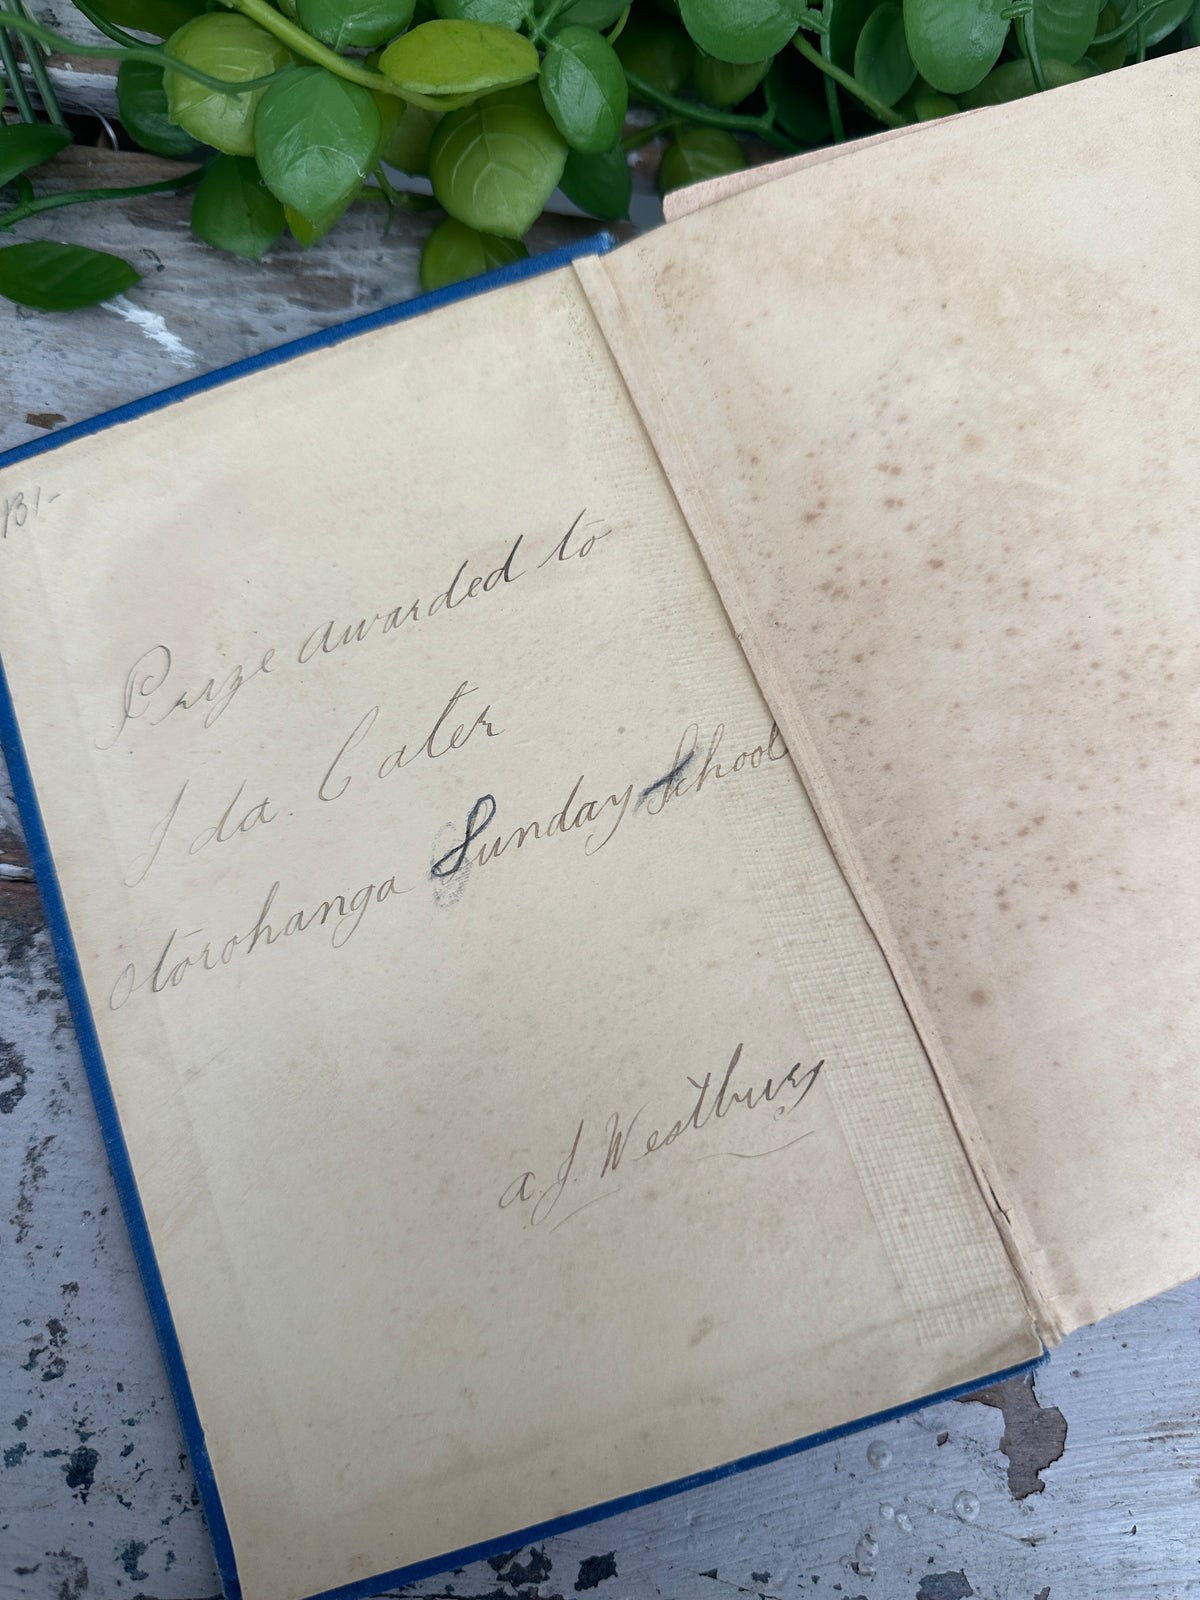 Prize awarded to
Ida. Cater
Otorohanga Sunday School
A J. Westbury